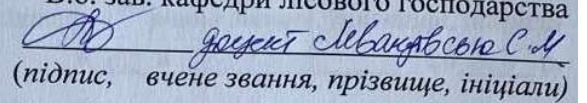 В.о. зав. кафедри лісового господарства
доцент Левандовсью С.М
(підпис, вчене звання, прізвище, ініціали)